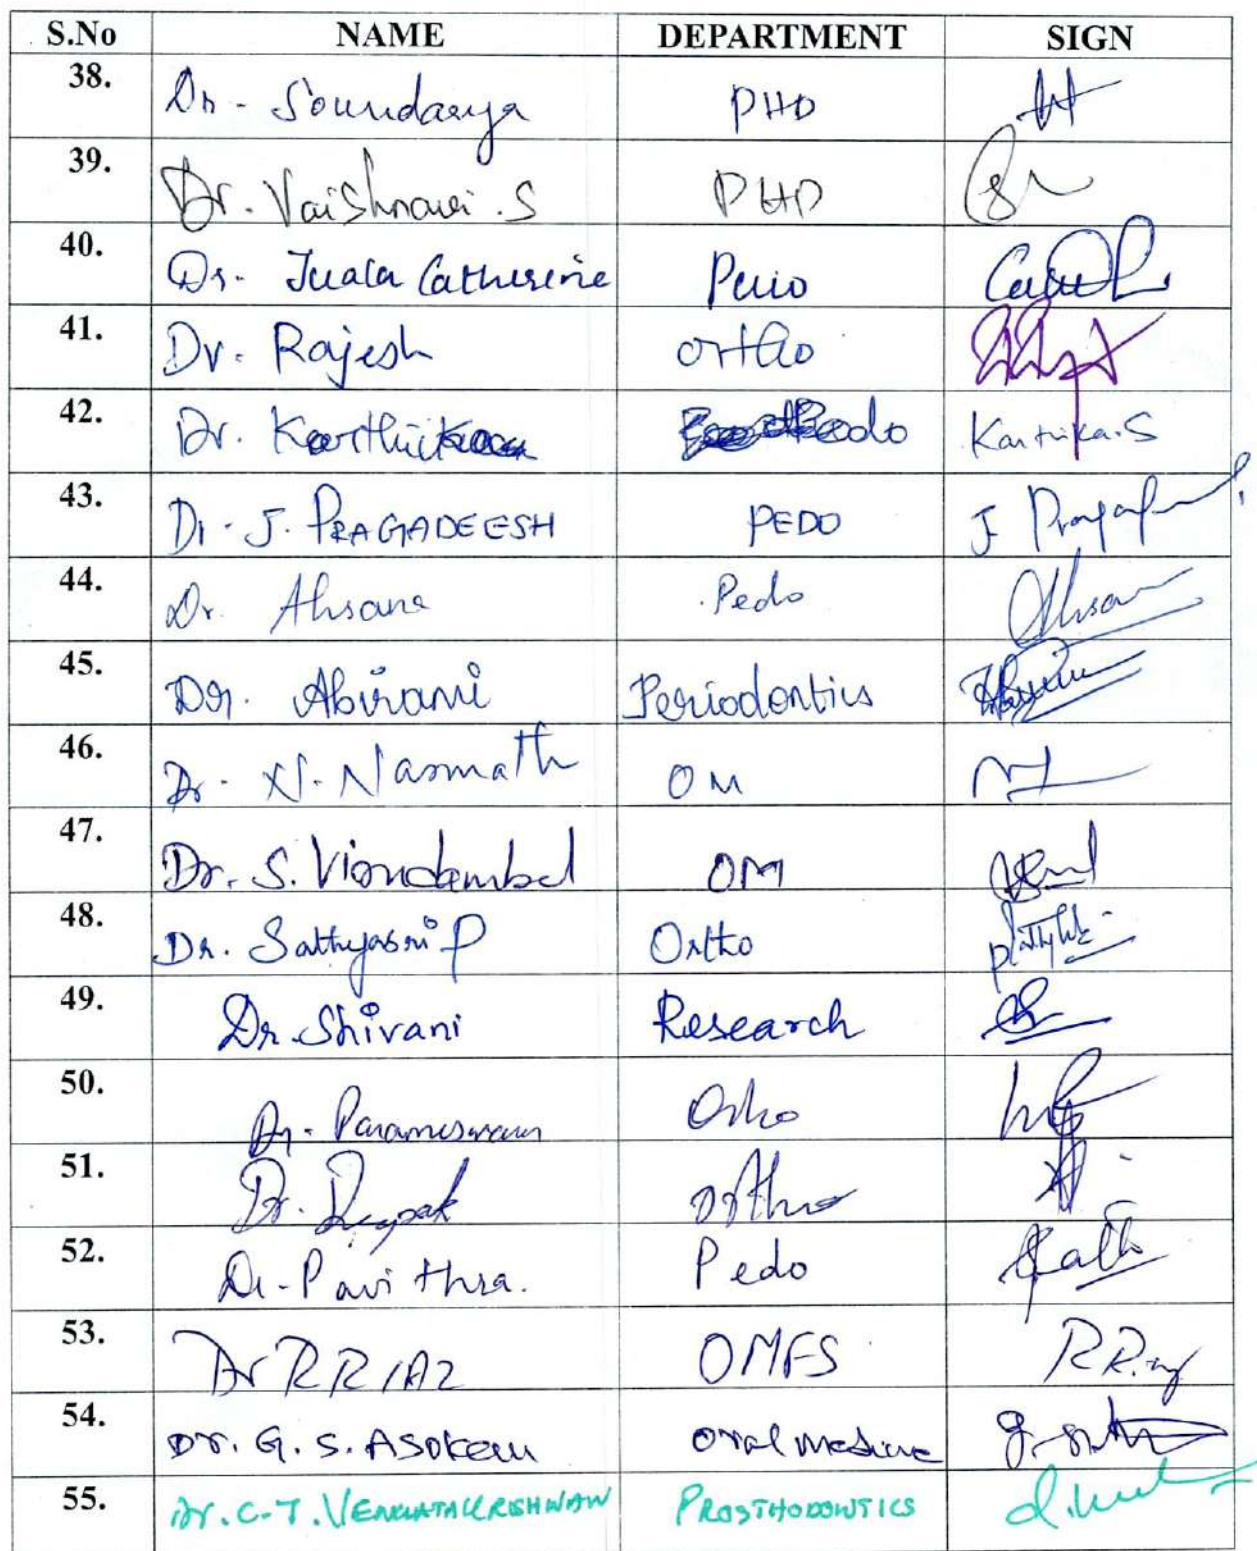 S.No NAME DEPARTMENT SIGN
38. Dr. Soundarya PHD
39. Dr. Vaishnavi . S PHD
40. Dr. Catherine Perio
41. Dr. Rajesh ortho
42. Dr. Karthika Pedo Karthika.S
43. Dr. J. PRAGADEESH PEDO J
44. Dr. Ahsana Pedo Ahsana
45. Dr. Abirami Periodontics
46. Dr. N. Nasmath OM
47. Dr. S. OM
48. Dr. Sathyasri P Ortho
49. Dr. Shivani Research
50. Dr. Parameswaran Ortho
51. Dr. Deepak ortho
52. Dr. Pavithra. Pedo
53. Dr R RIAZ OMFS
54. Dr. G. S. ASOKAN Oral Medicine
55. Dr. C. T. VENKATAKRISHNAN PROSTHODONTICS